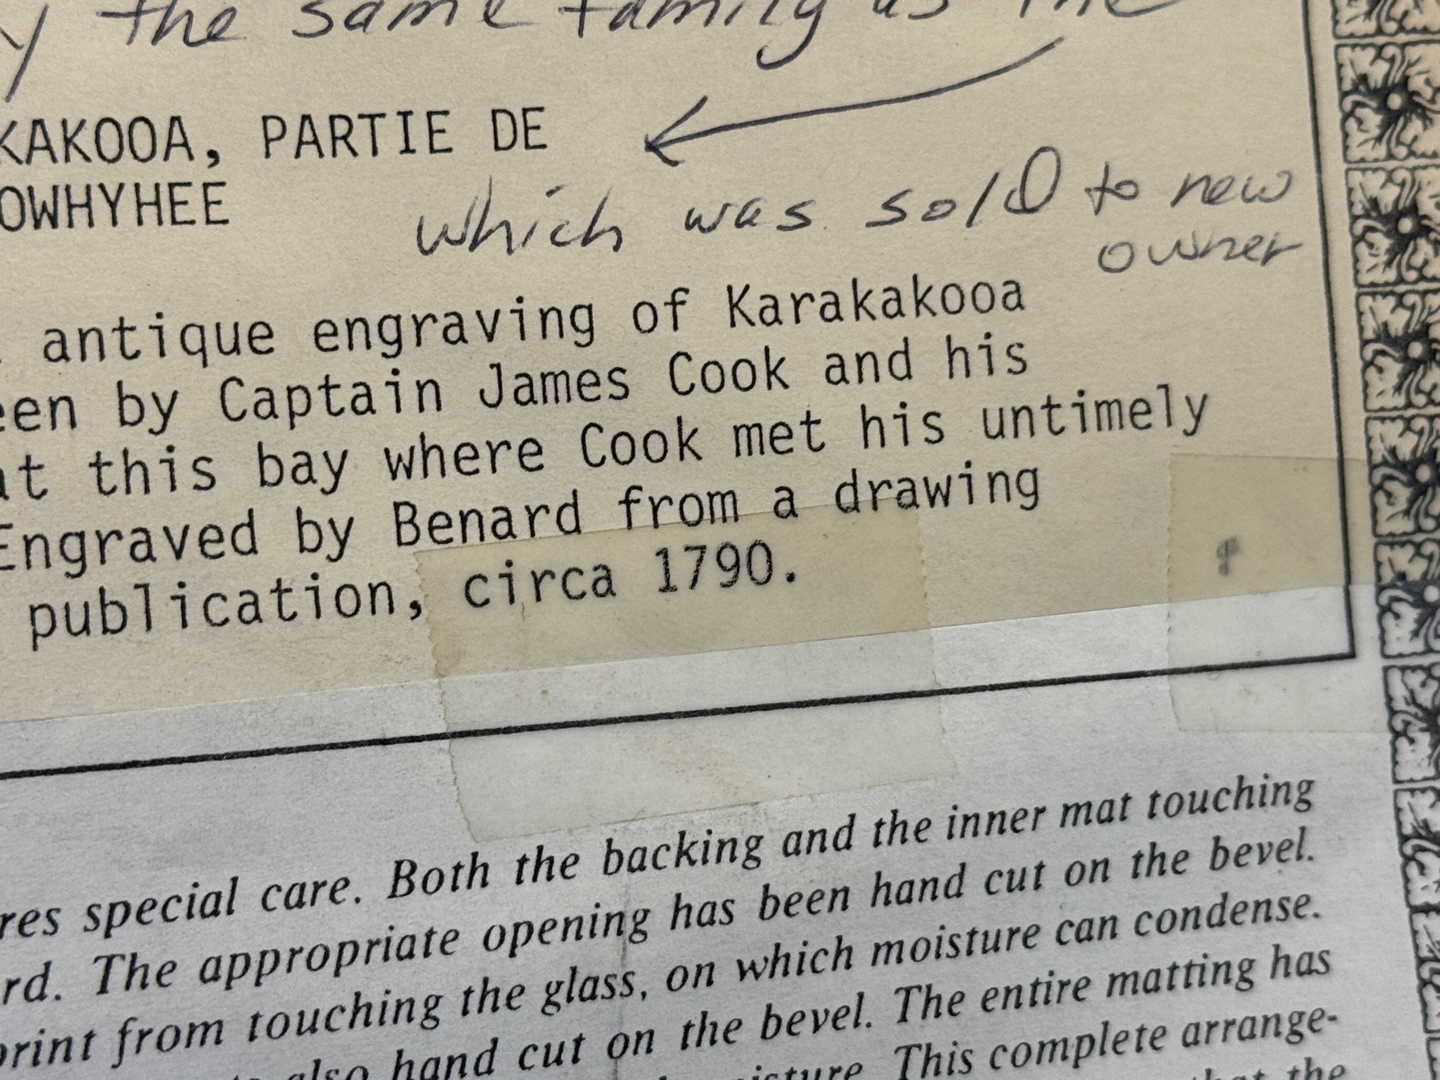 the same family as the
KAKOOA, PARTIE DE
OWHYHEE
which was sold to new
owner
antique engraving of Karakakooa
een by Captain James Cook and his
at this bay where Cook met his untimely
Engraved by Benard from a drawing
publication, circa 1790.
res special care. Both the backing and the inner mat touching
rd. The appropriate opening has been hand cut on the bevel.
print from touching the glass, on which moisture can condense.
also hand cut on the bevel. The entire matting has
isture. This complete arrange-
that the